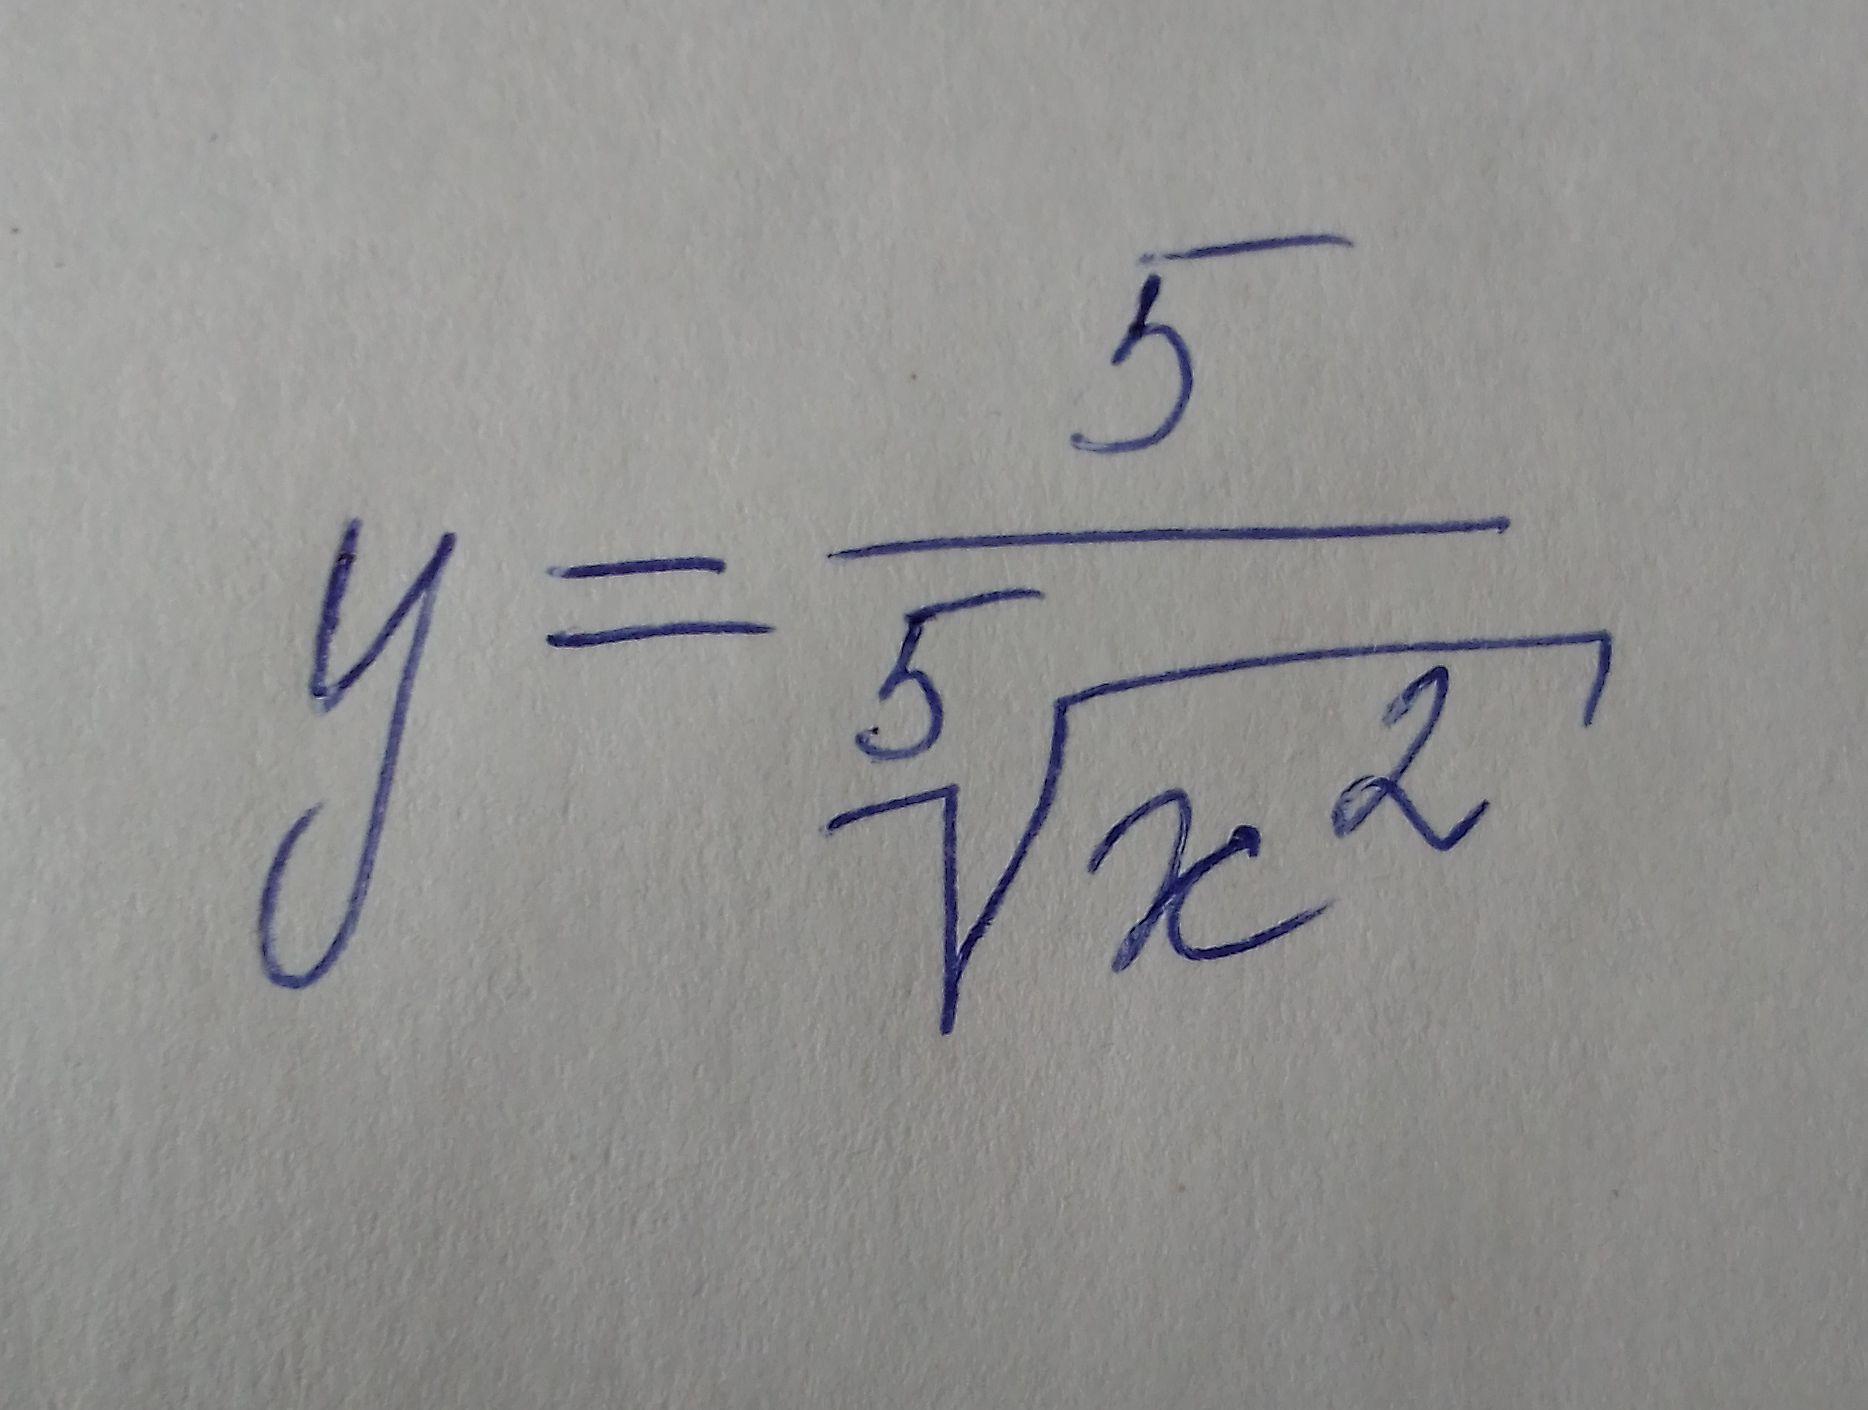 y = 5 / ⁵√x²